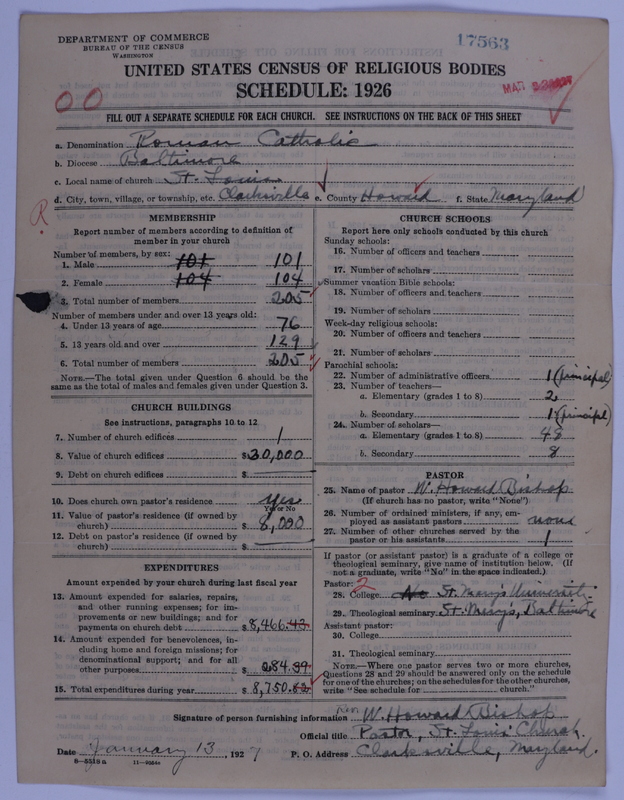 DEPARTMENT OF COMMERCE
BUREAU OF THE CENSUS
WASHINGTON
17563
UNITED STATES CENSUS OF RELIGIOUS BODIES
SCHEDULE: 1926
00
FILL OUT A SEPARATE SCHEDULE FOR EACH CHURCH. SEE INSTRUCTIONS ON THE BACK OF THIS SHEET
a. Denomination Roman Catholic
b. Diocese Baltimore
c. Local name of church St. Louis
d. City, town, village, or township, etc. Clarksville e. County Howard f. State Maryland
R
MEMBERSHIP
Report number of members according to definition of member in your church
Number of members, by sex:
1. Male 101 101
2. Female 104 104
3. Total number of members 205
Number of members under and over 13 years old:
4. Under 13 years of age 76
5. 13 years old and over 129
6. Total number of members 205
NOTE.—The total given under Question 6 should be the
same as the total of males and females given under Question 3.
CHURCH BUILDINGS
See instructions, paragraphs 10 to 12
7. Number of church edifices 1
8. Value of church edifices $30,000
9. Debt on church edifices $
10. Does church own pastor's residence yes
Yes or No
11. Value of pastor's residence (if owned by
church) $8,000
12. Debt on pastor's residence (if owned by
church) $
EXPENDITURES
Amount expended by your church during last fiscal year
13. Amount expended for salaries, repairs,
and other running expenses; for im-
provements or new buildings; and for
payments on church debt $8,466.43
14. Amount expended for benevolences, in-
cluding home and foreign missions; for
denominational support; and for all
other purposes $284.39
15. Total expenditures during year $8,750.82
CHURCH SCHOOLS
Report here only schools conducted by this church
Sunday schools:
16. Number of officers and teachers
17. Number of scholars
Summer vacation Bible schools:
18. Number of officers and teachers
19. Number of scholars
Week-day religious schools:
20. Number of officers and teachers
21. Number of scholars
Parochial schools:
22. Number of administrative officers 1 (principal)
23. Number of teachers—
a. Elementary (grades 1 to 8) 2
b. Secondary 1 (principal)
24. Number of scholars—
a. Elementary (grades 1 to 8) 48
b. Secondary 8
PASTOR
25. Name of pastor W. Howard Bishop
(If church has no pastor, write "None")
26. Number of ordained ministers, if any, em-
ployed as assistant pastors none
27. Number of other churches served by the
pastor or his assistants 1
If pastor (or assistant pastor) is a graduate of a college or
theological seminary, give name of institution below. (If
not a graduate, write "No" in the space indicated.)
Pastor: 2
28. College No St. Mary's University
29. Theological seminary St. Mary's, Baltimore
Assistant pastor:
30. College
31. Theological seminary
NOTE.—Where one pastor serves two or more churches,
Questions 28 and 29 should be answered only on the schedule
for one of the churches; on the schedules for the other churches,
write "See schedule for church."
Signature of person furnishing information Rev. W. Howard Bishop
Official title Pastor, St. Louis Church
Date January 13, 1927 P. O. Address Clarksville, Maryland.